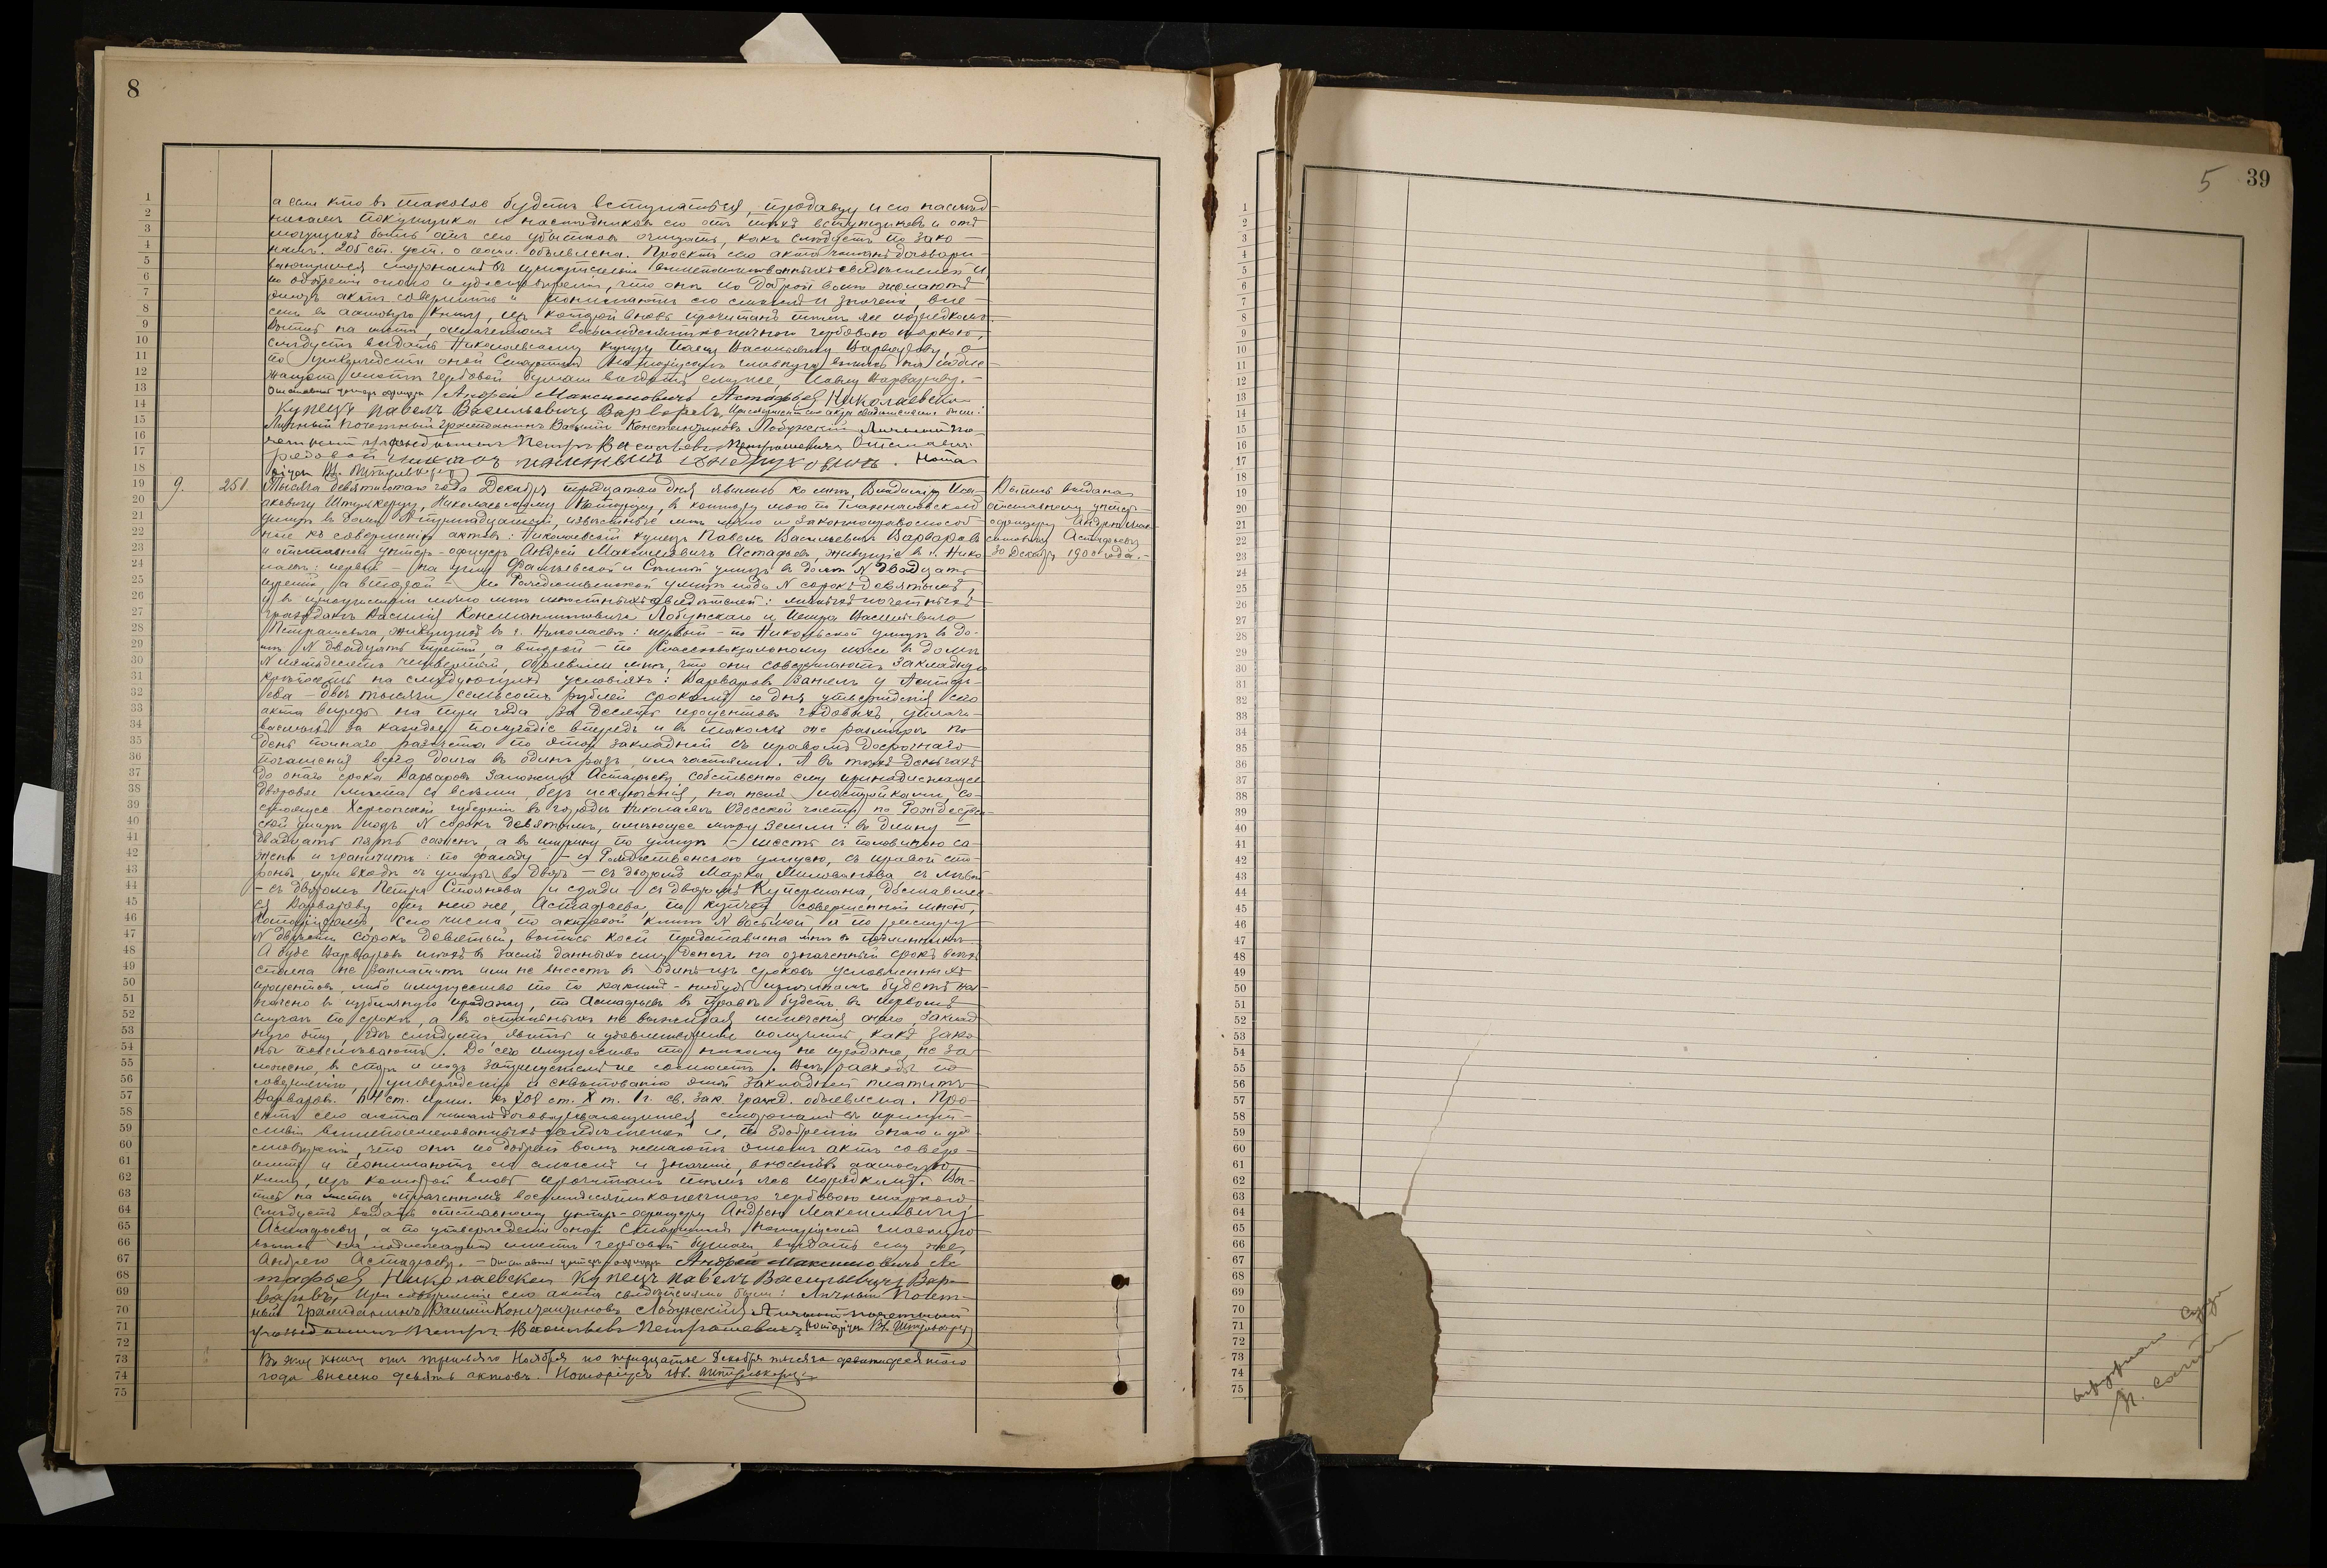 8
а если кто в таковое будетъ вступаться, продавцу и его наслед-
никамъ покупщика и наследниковъ его отъ техъ вступщиковъ и отъ
могущихъ быть отъ сего убытковъ очищать, какъ следуетъ по зако-
намъ. 205 ст. уст. о объявлена. Проектъ сего акта читанъ договари-
вающимися сторонами въ присутствіи вышепоименованныхъ свидетелей и,
по одобреніи онаго и удостовереніи, что они по доброй воле желаютъ
актъ совершить и понимаютъ его смыслъ и значеніе, вне-
сенъ в актовую книгу, изъ которой вновь прочитанъ темъ же порядкомъ.
Выпись на листе, оплаченномъ восьмидесятикопеечною гербовою маркою,
следуетъ выдать Николаевскому купцу Павлу Васильевичу Варварову, а
по утвержденіи оной Старшимъ Нотаріусомъ главную выпись на подле-
жащемъ листе гербовой бумаги выдать ему же, Павлу Варварову. -
Отставной унтеръ офицеръ Андрей Максимовичъ Астафьев Николаевский
Купецъ Павелъ Васильевичъ Варваровъ. При совершеніи сего акта свидетелями были:
Личный почетный гражданинъ Василій Константиновъ Лобунский Личный по-
четный гражданинъ Петръ Васильевъ Петрашевичъ Отставной
рядовой . Нота-
ріусъ В. Штулькерцъ
9. 250. Тысяча девятисотаго года Декабря тридцатаго дня явились ко мне, Владиміру Иса-
аковичу Штулькерцу, Николаевскому Нотаріусу, в контору мою по Глазенаповской
улице в доме № тринадцатый, известные мне лично и законноправоспособ-
ные къ совершенію актовъ: Николаевскій купецъ Павелъ Васильевичъ Варваровъ
и отставной унтеръ-офицеръ Андрей Максимовичъ Астафьевъ, живущіе в г. Нико-
лаеве: первый - на углу Фалеевской и Сенной улицъ в доме № двадцать
третій, а второй - по Рождественской улице подъ № сорокъ девятымъ,
и в присутствіи лично мне известныхъ свидетелей: личныхъ почетныхъ
гражданъ Василія Константиновича Лобунскаго и Петра Васильевича
Петрашевича, живущихъ в г. Николаеве: первый - по Никольской улице в до-
ме № двадцать третій, а второй - по шоссе в доме
№ пятьдесятъ четвертый, объявили мне, что они совершаютъ закладную
крепость на следующихъ условіяхъ: Варваровъ занялъ у Астафь-
ева - две тысячи семьсотъ рублей срокомъ со дня утвержденія сего
акта впредь на три года за десять процентовъ годовыхъ, уплачи-
ваемыхъ за каждое полугодіе впередъ и в такомъ же размере по
день полнаго разсчета по этой закладной съ правомъ досрочнаго
погашенія всего долга въ одинъ разъ, или частями. А в техъ деньгахъ
до онаго срока Варваровъ заложилъ Астафьеву собственно ему принадлежащее
дворовое место со всеми, безъ исключенія, на немъ постройками, со-
стоящее Херсонской губерніи в городе Николаеве Одесской части по Рождествен-
ской улице подъ № сорокъ девятымъ, имеющее меру земли: в длину -
двадцать пять сажень, а в ширину по улице - шесть съ половиною са-
жень и граничитъ: по фасаду - съ Рождественскою улицею, съ правой сто-
роны, при входе съ улицы во дворъ - съ дворомъ Марка Милованова, съ левой
- съ дворомъ Петра Стоянова и сзади - съ дворомъ Купермана, доставшее-
ся Варварову отъ него же, Астафьева, по купчей, совершенной мною,
Нотаріусомъ, сего числа, по актовой книге № восьмой, а по реестру
№ двести сорокъ девятый, выпись коей представлена мне в подлиннике.
А буде Варваровъ ихъ в заемъ данныхъ ему денегъ на означенный срокъ всехъ
сполна не заплатитъ или не внесетъ в одинъ изъ сроковъ условленныхъ
процентовъ, либо имущество то по какимъ-нибудь причинамъ будетъ на-
значено в публичную продажу, то Астафьевъ в праве будетъ в первомъ
случае по сроке, а в остальныхъ не выжидая истеченія онаго, заклад-
ную эту, где следуетъ, явить и удовлетвореніе получить, какъ зако-
ны повелеваютъ. До сего имущество то никому не продано, не за-
ложено, в споре и подъ запрещеніемъ не состоитъ. Все расходы по
совершенію, утвержденію и сквитованію этой закладной платитъ
Варваровъ. ст. прим. къ 708 ст. X т. 1 ч. св. зак. гражд. объявлена. Про-
ектъ сего акта читанъ договаривающимися сторонами въ присут-
ствіи вышепоименованныхъ свидетелей и, по одобреніи онаго и удо-
стовереніи, что они по доброй воле желаютъ этотъ актъ совер-
шить и понимаютъ его смыслъ и значеніе, внесенъ в актовую
книгу, изъ которой вновь прочитанъ темъ же порядкомъ. Вы-
пись на листе, оплаченномъ восьмидесятикопеечною гербовою маркою
следуетъ выдать отставному унтеръ-офицеру Андрею Максимовичу
Астафьеву, а по утвержденіи оной Старшимъ Нотаріусомъ главную
выпись на подлежащемъ листе гербовой бумаги выдать ему же,
Андрею Астафьеву. - Отставной унтеръ офицеръ Андрей Максимовичъ Ас-
тафьев Николаевский Купецъ Павелъ Васильевичъ Вар-
варовъ, При совершеніи сего акта свидетелями были: Личный почет-
ный гражданинъ Василій Константиновъ Лобунский Личный почетный
гражданинъ Петръ Васильевъ Петрашевичъ Нотаріусъ Вл. Штулькерцъ
Въ эту книгу отъ третьяго Ноября по тридцатое Декабря тысяча девятисотаго
года внесено девять актовъ. Нотаріусъ Вл. Штулькерцъ
Выпись выдана
отставному унтеръ-
офицеру Андрею Мак-
симовичу Астафьеву
30 Декабря 1900 года. -
5 39